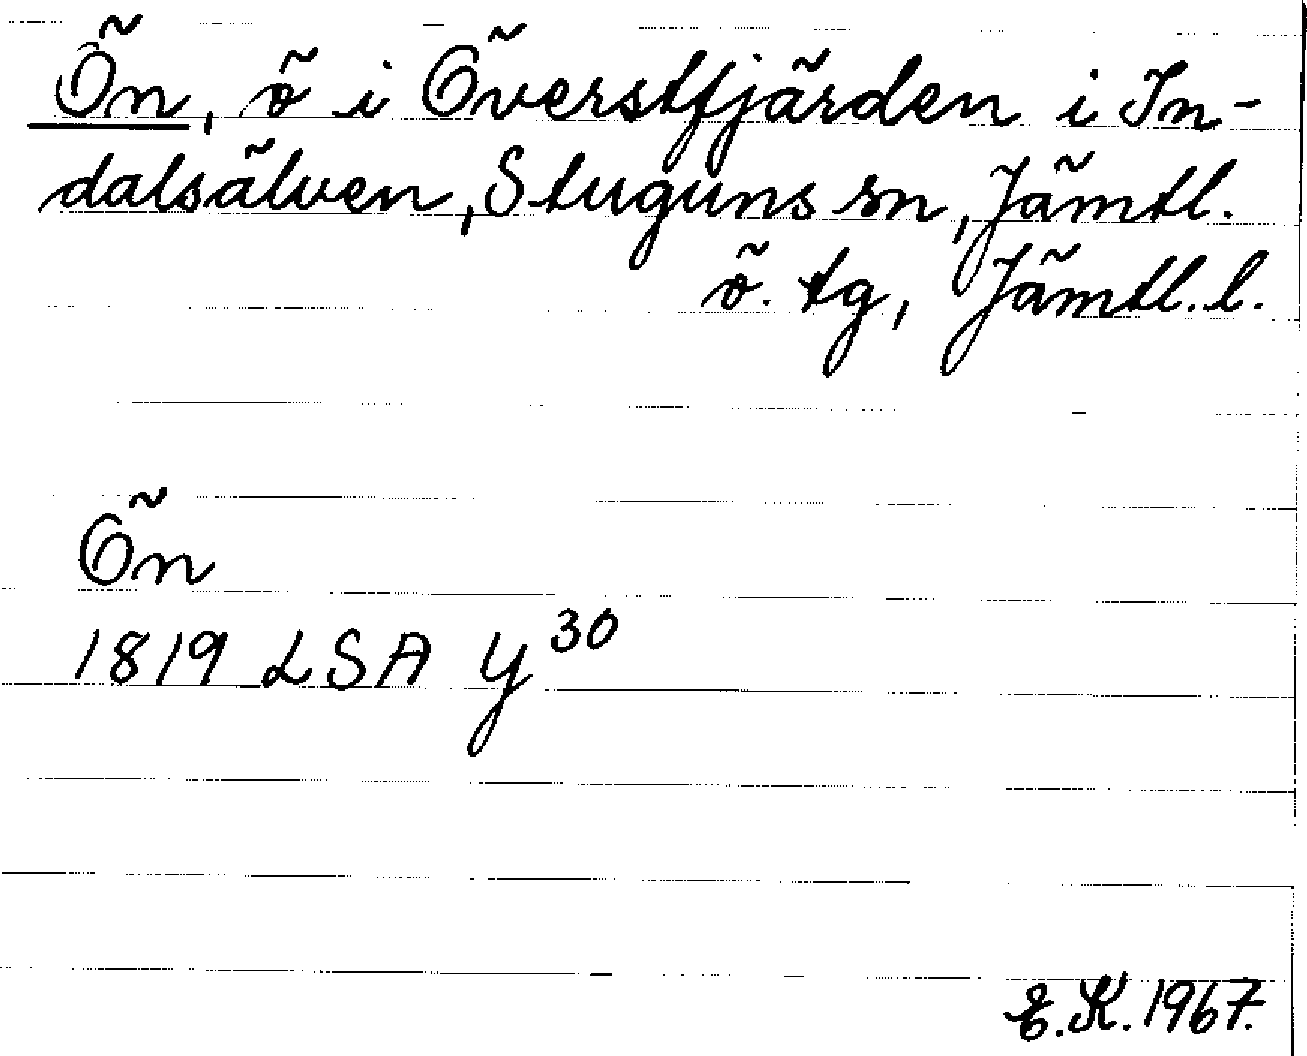 Ön, ö i Överstfjärden i In-
dalsälven, Stuguns sn, Jämtl.
ö. tg, Jämtl. l.
Ön
1819 LSA Y³⁰
E.K. 1967.